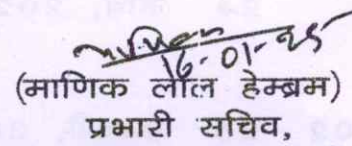 16-01-25
(माणिक लाल हेम्ब्रम)
प्रभारी सचिव,